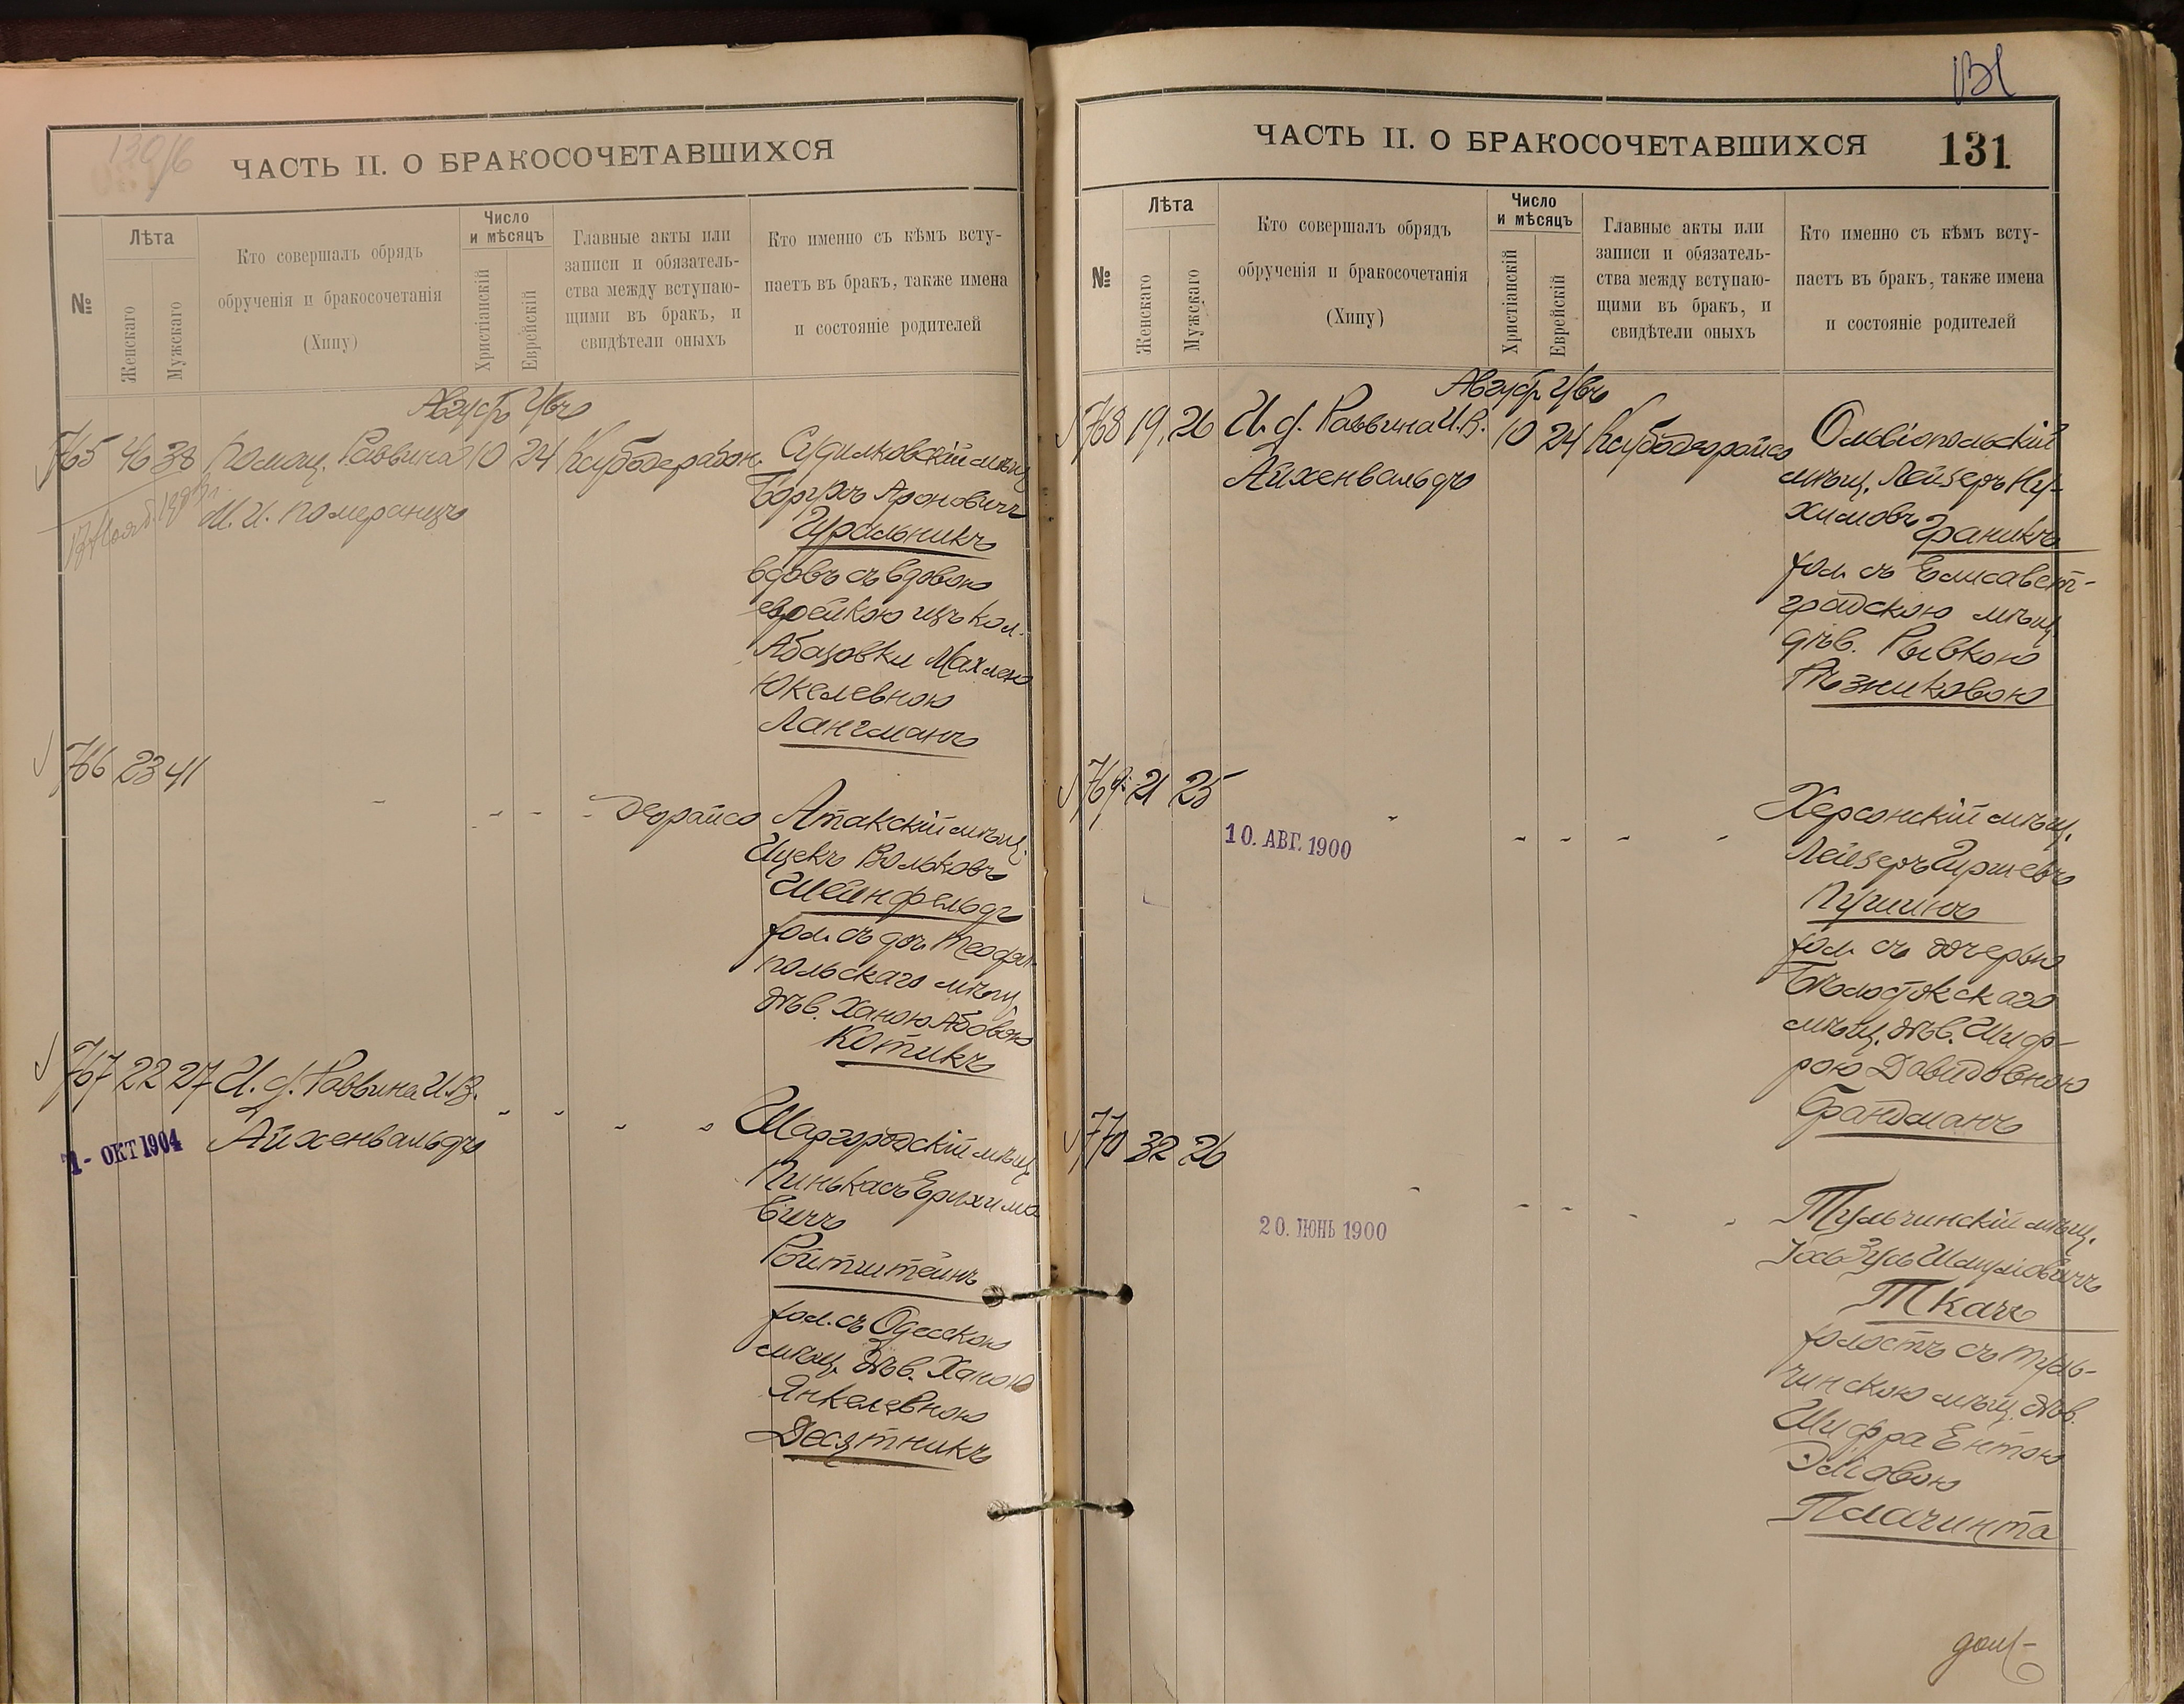 130/б
ЧАСТЬ II. О БРАКОСОЧЕТАВШИХСЯ
№
Лѣта
Женскаго
Мужскаго
Кто совершалъ обрядъ
обрученія и бракосочетанія
(Хипу)
Число
и мѣсяцъ
Христіанскій
Еврейскій
Главные акты или
записи и обязатель-
ства между вступаю-
щими въ бракъ, и
свидѣтели оныхъ
Кто именно съ кѣмъ всту-
паетъ въ бракъ, также имена
и состояніе родителей
765 46 38 Помощ. Раввина 10 24
М. И. Померанцъ
Судилковскій мѣщ.
Борухъ Ароновичъ
Гуральникъ
вдовъ съ вдовою
еврейкою изъ кол.
Абазовки Махлею
Юкелевною
Лангманъ
766 23 41
Деорайсо
Атакскій мѣщ.
Ицекъ Вольковъ
Шейнфельдъ
хол. съ доч. Теофи-
польскаго мѣщ.
дѣв. Ханою Абовою
Котикъ
767 22 27 И. д. Раввина И. В.
Айхенвальдъ
1- ОКТ 1904
Шаргородскій мѣщ.
Пинькасъ Ерихимо-
вичъ
Ройтштейнъ
хол. съ Одесскою
мѣщ. дѣв. Ханою
Янкелевною
Десятникъ
131
ЧАСТЬ II. О БРАКОСОЧЕТАВШИХСЯ
131
№
Лѣта
Женскаго
Мужскаго
Кто совершалъ обрядъ
обрученія и бракосочетанія
(Хипу)
Число
и мѣсяцъ
Христіанскій
Еврейскій
Главные акты или
записи и обязатель-
ства между вступаю-
щими въ бракъ, и
свидѣтели оныхъ
Кто именно съ кѣмъ всту-
паетъ въ бракъ, также имена
и состояніе родителей
768 19 26 И. д. Раввина И. В. 10 24 Ксубодеорайсо
Айхенвальдъ
Ольвіопольскій
мѣщ. Лейзеръ Ну-
химовъ Граникъ
хол. съ Елисавет-
градскою мѣщ.
дѣв. Рывкою
Рѣзниковою
769 21 25
10. АВГ. 1900
Херсонскій мѣщ.
Лейзеръ Гуршевъ
хол. съ дочерью
Бѣлостокскаго
мѣщ. дѣв. Шиф-
рою Давидовною
Брандманъ
770 32 26
20. ІЮНЬ 1900
Тульчинскій мѣщ.
Ткачъ
холостъ съ Туль-
чинскою мѣщ. дѣв.
Шифра Ентою
Эліовою
Плачинта